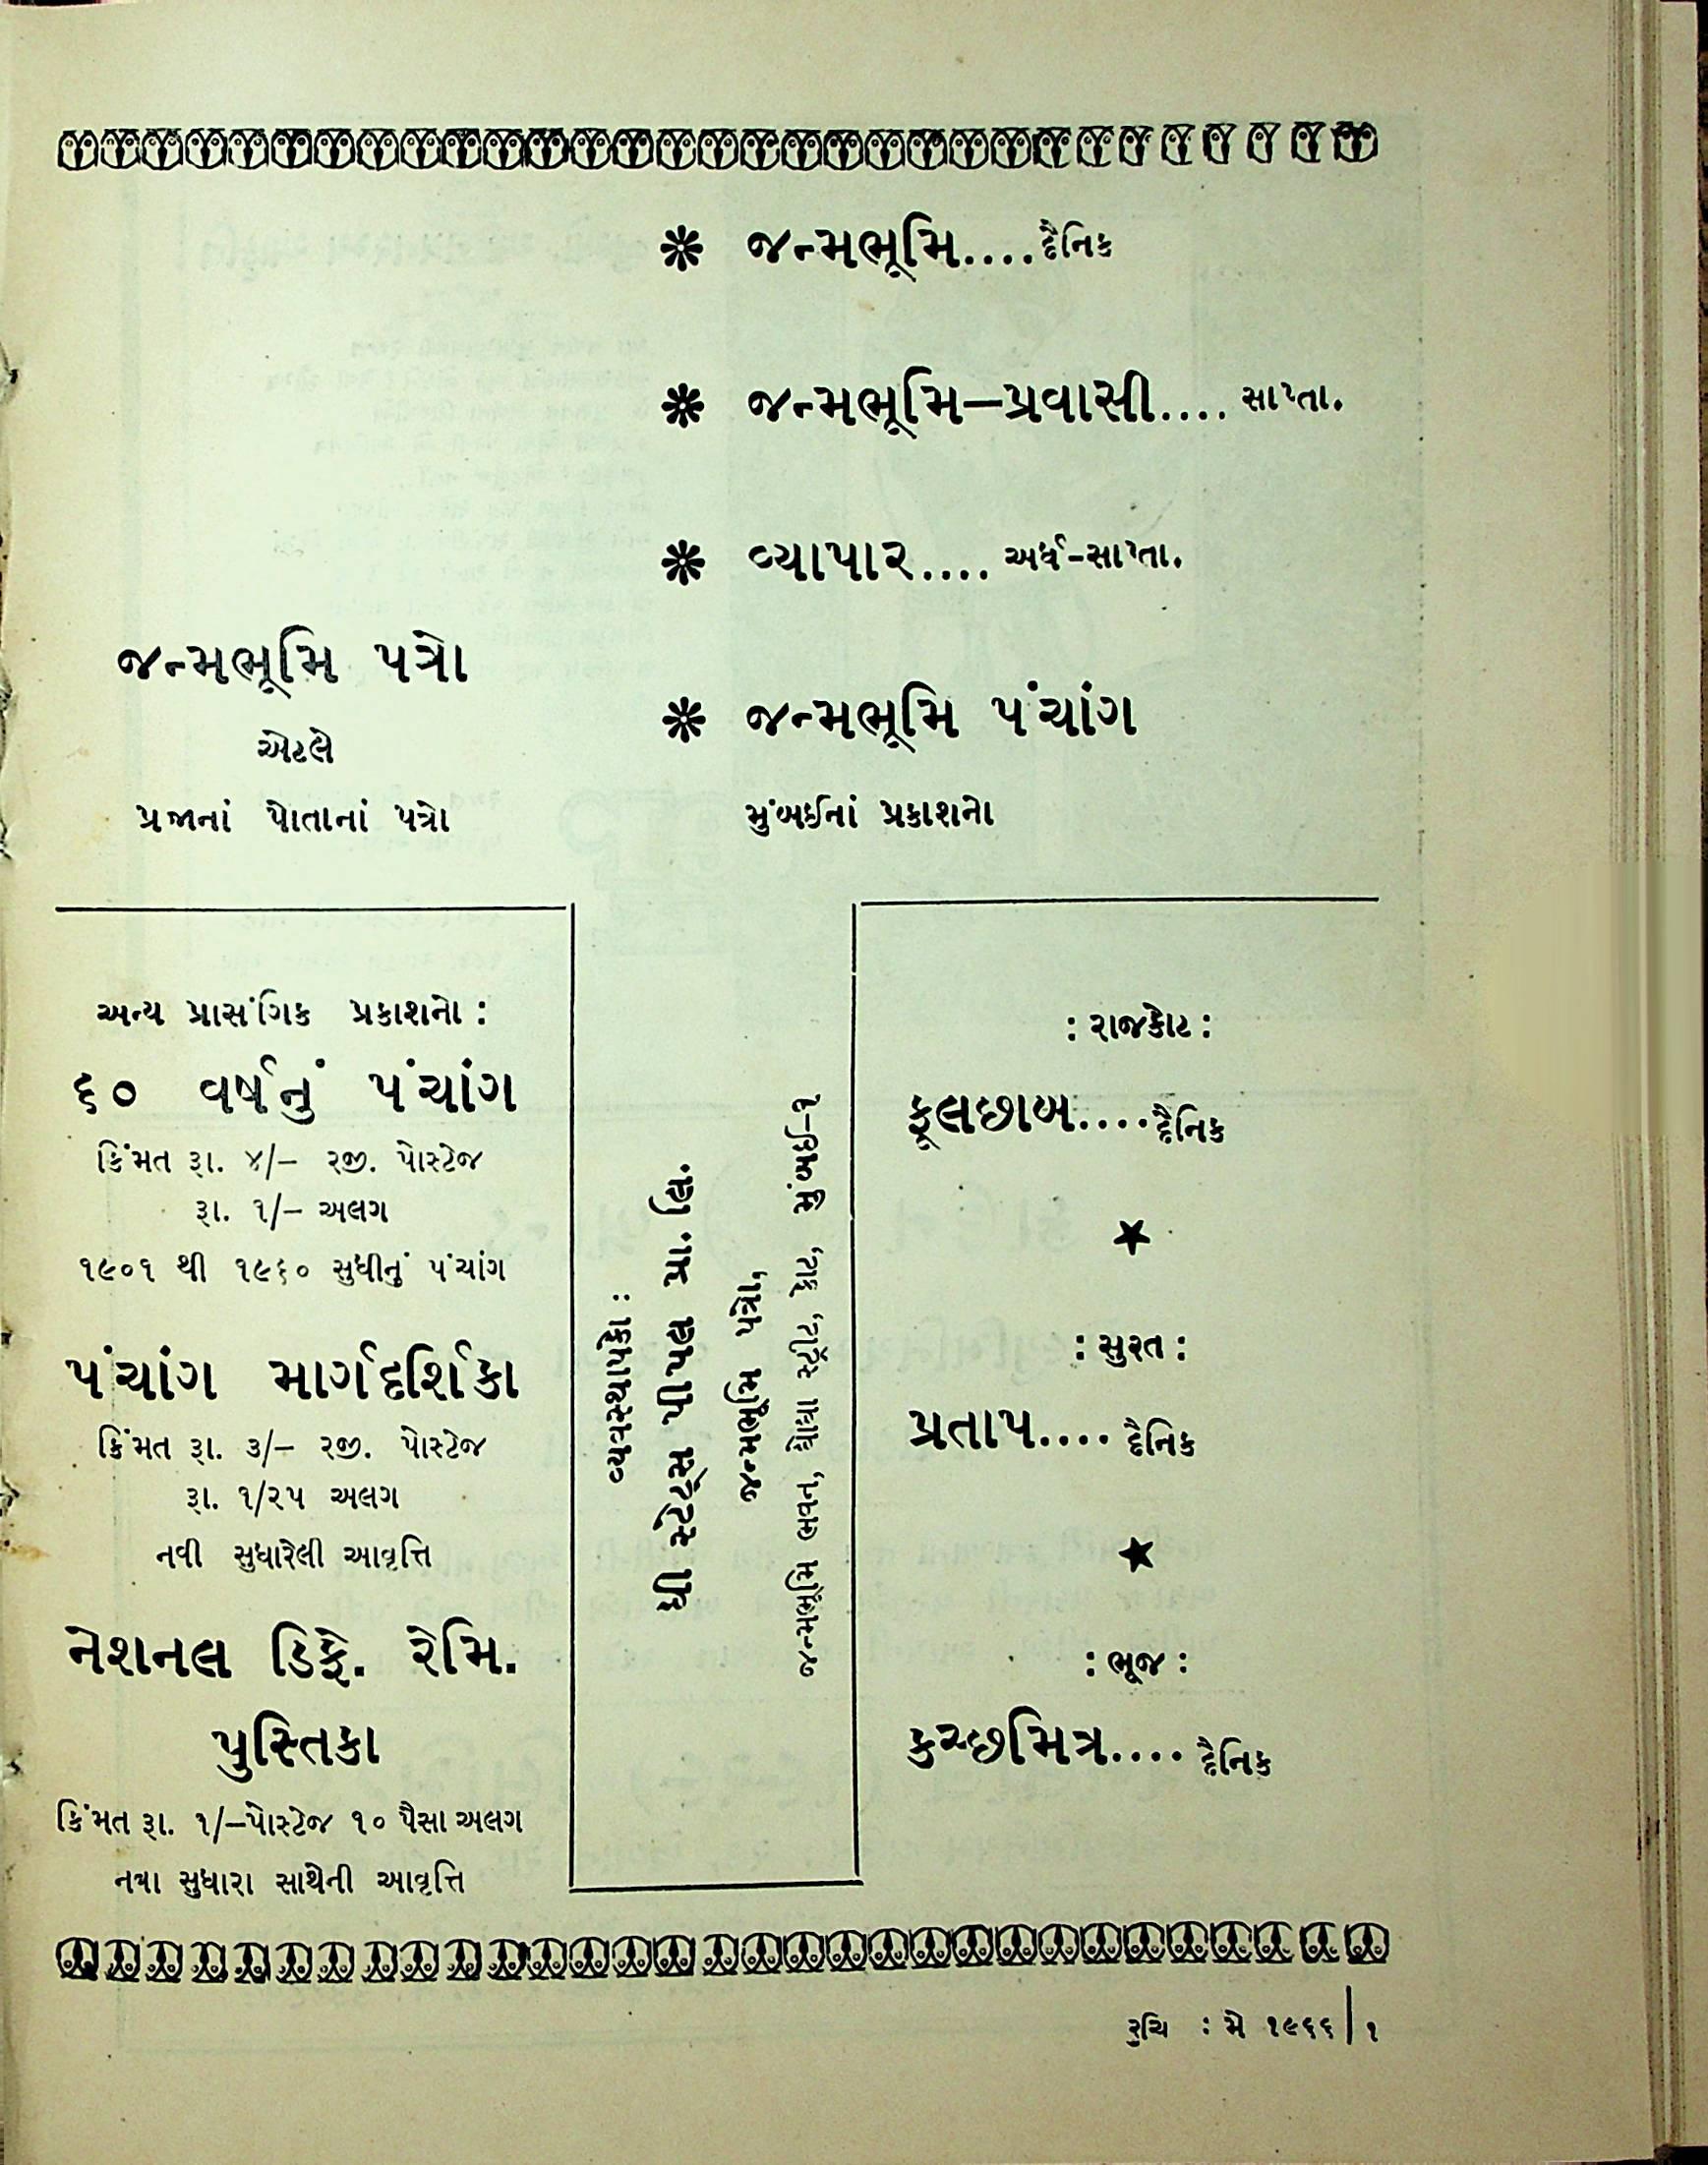 ❋ જન્મભૂમિ....દૈનિક
❋ જન્મભૂમિ–પ્રવાસી.... સાપ્તા.
❋ વ્યાપાર.... અર્ધ-સાપ્તા.
❋ જન્મભૂમિ પંચાંગ
મુંબઈનાં પ્રકાશનો
જન્મભૂમિ પત્રો
એટલે
પ્રજાનાં પોતાનાં પત્રો
અન્ય પ્રાસંગિક પ્રકાશનો :
૬૦ વર્ષનું પંચાંગ
કિંમત રૂા. ૪/– રજી. પોસ્ટેજ
રૂા. ૧/– અલગ
૧૯૦૧ થી ૧૯૬૦ સુધીનું પંચાંગ
પંચાંગ માર્ગદર્શિકા
કિંમત રૂા. ૩/– રજી. પોસ્ટેજ
રૂા. ૧/૨૫ અલગ
નવી સુધારેલી આવૃત્તિ
નેશનલ ડિફે. રેમિ.
પુસ્તિકા
કિંમત રૂા. ૧/–પોસ્ટેજ ૧૦ પૈસા અલગ
નવા સુધારા સાથેની આવૃત્તિ
વ્યવસ્થાપકો :
ધી સ્ટેટ્સ પીપલ પ્રા. લિ.
જન્મભૂમિ પત્રો,
જન્મભૂમિ ભવન, ઘોઘા સ્ટ્રીટ, કોટ, મુંબઈ–૧
: રાજકોટ :
ફૂલછાબ....દૈનિક
★
: સુરત :
પ્રતાપ.... દૈનિક
★
: ભૂજ :
કચ્છમિત્ર.... દૈનિક
રુચિ : મે ૧૯૬૬ | ૧